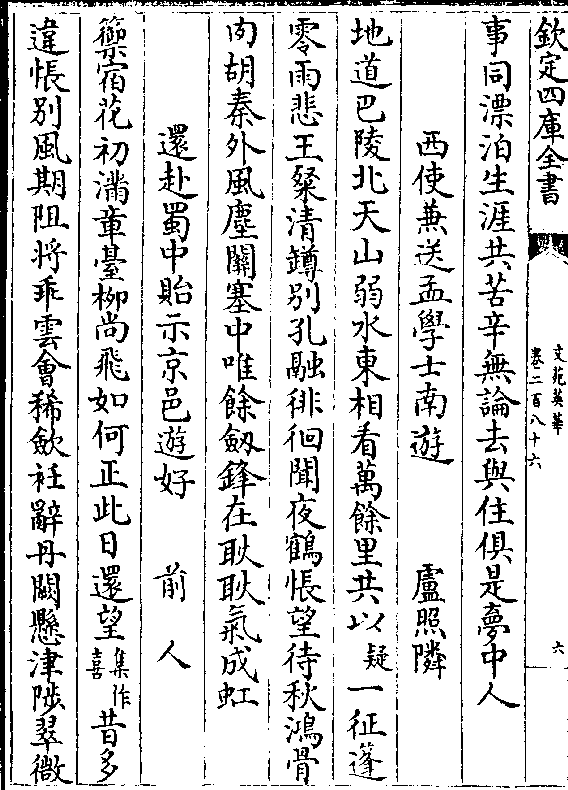 欽定四庫全書
文苑英華
卷二百八十六
六
事同漂泊生涯共苦辛無論去與住俱是夢中人
西使兼送孟學士南遊　盧照隣
地道巴陵北天山弱水東相看萬餘里共以疑一征蓬
零雨悲王粲清鐏別孔融徘徊聞夜鶴悵望待秋鴻骨
肉胡秦外風塵關塞中唯餘劔鋒在耿耿氣成虹
還赴蜀中貽示京邑遊好　前人
籞宿花初滿章臺柳尚飛如何正此日還望集作喜昔多
違悵別風期阻將乖雲會稀歛衽辭丹闕懸津陟翠微